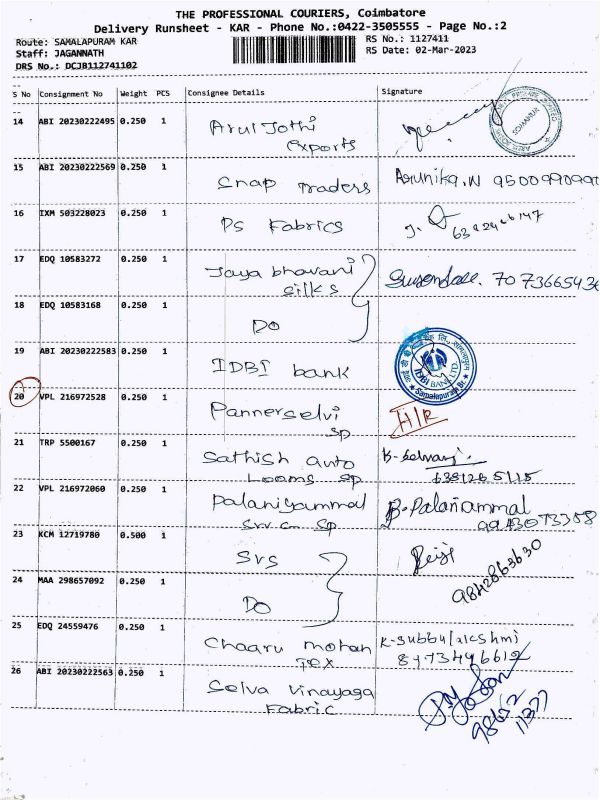 THE PROFESSIONAL COURIERS, Coimbatore
Delivery Runsheet - KAR - Phone No.:0422-3505555 - Page No.:2
Route: SAMALAPURAM KAR RS No.: 1127411
Staff: JAGANNATH RS Date: 02-Mar-2023
DRS No.: DCJB112741102
S No Consignment No Weight PCS Consignee Details Signature
14 ABI 20230222495 0.250 1 Arul Jothi
exports
SOMANUR
15 ABI 20230222569 0.250 1 Snap Traders Arunika.N
16 IXM 503228023 0.250 1 PS Fabrics
17 EDQ 10583272 0.250 1 Jaya bhavani
silks
18 EDQ 10583168 0.250 1 Do
19 ABI 20230222583 0.250 1 IDBI bank
IDBI BANK LTD.
Samalapuram Br.
20 VPL 216972528 0.250 1 Pannerselvi H/R
sp
21 TRP 5500167 0.250 1 Sathish auto
Looms sp 6381265115
22 VPL 216972060 0.250 1 Palaniyammal B. Palaniammal
sp
23 KCM 12719780 0.500 1 SVS
9842863630
24 MAA 298657092 0.250 1 Do
25 EDQ 24559476 0.250 1 Chaaru mohan K-Subbulakshmi
Tex 8973446612
26 ABI 20230222563 0.250 1 Selva Vinayaga
Fabric
98652
11377